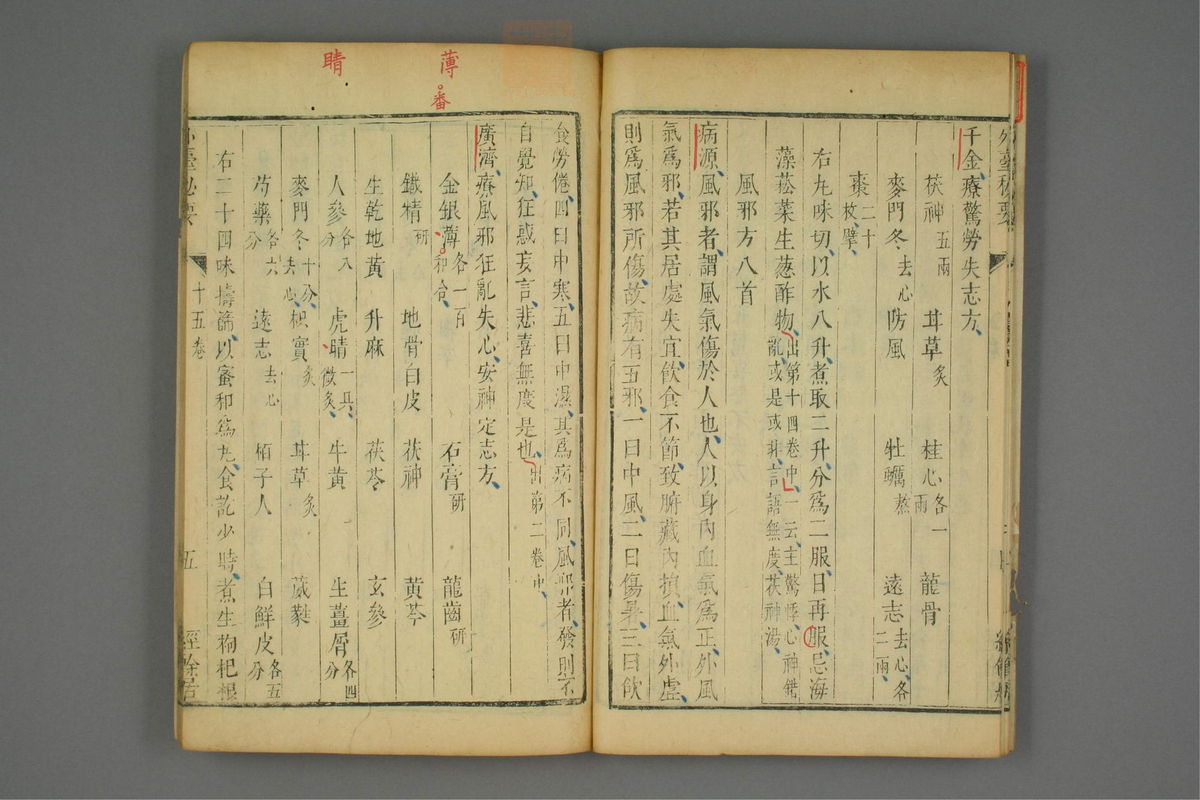 千金療驚勞失志方
茯神五兩 甘草炙 桂心各一兩 龍骨
麥門冬去心 防風 牡蠣熬 遠志去心各二兩
棗二十枚擘
右九味切以水八升煮取二升分爲二服日再服忌海
藻菘菜生蔥酢物出第十四卷中一云主驚悸心神錯亂或是或非言語無度茯神湯
風邪方八首
病源風邪者謂風氣傷於人也人以身內血氣爲正外風
氣爲邪若其居處失宜飲食不節致腑藏內損血氣外虛
則爲風邪所傷故病有五邪一曰中風二曰傷暑三曰飲
食勞倦四曰中寒五曰中濕其爲病不同風邪者發則不
自覺知狂惑妄言悲喜無度是也出第二卷中
廣濟療風邪狂亂失心安神定志方
金銀薄各一百和合 石膏研 龍齒研
鐵精研 地骨白皮 茯神 黃芩
生乾地黃 升麻 茯苓 玄參
人參各八分 虎睛一具微炙 牛黃 生薑屑各四分
麥門冬十分去心 枳實炙 甘草炙 葳蕤
芍藥各六分 遠志去心 栢子人 白鮮皮各五分
右二十四味擣篩以蜜和爲丸食訖少時煮生枸杞根
外臺秘要
十五卷
五
經餘居
薄
番
睛